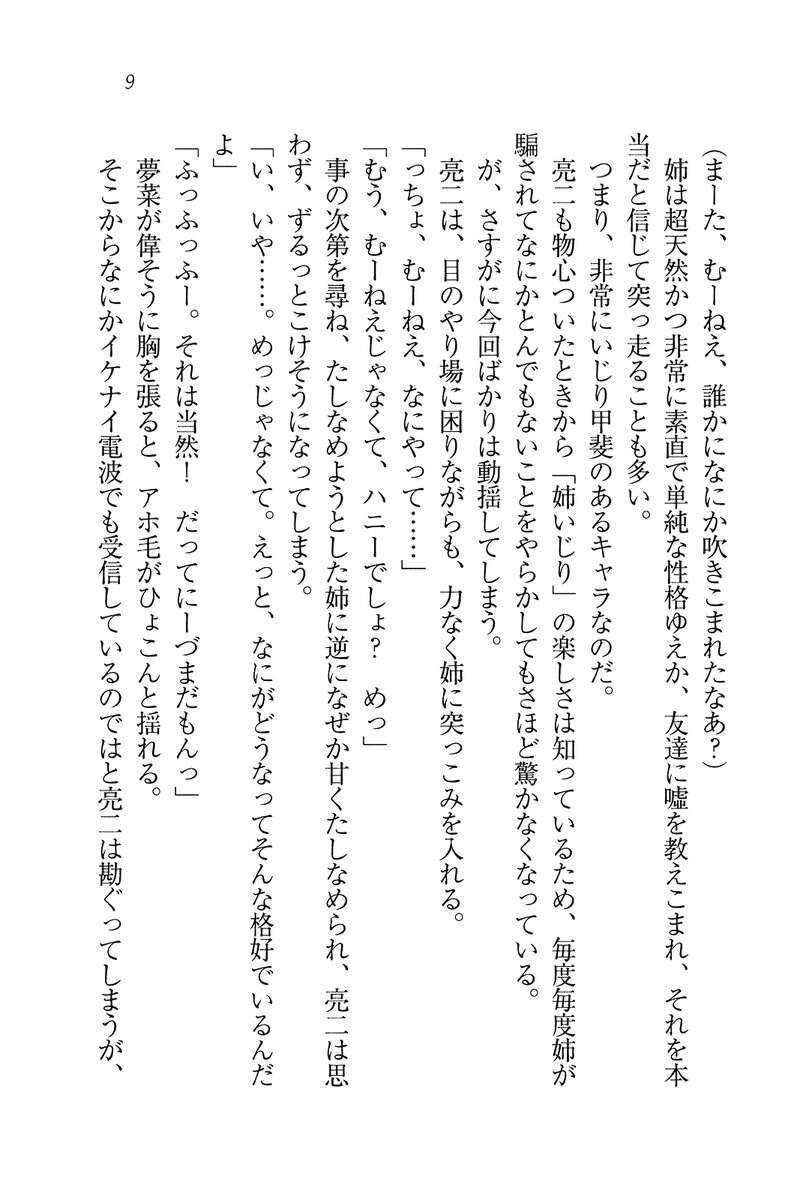 9
(まーた、むーねえ、誰かになにか吹きこまれたなあ?)
姉は超天然かつ非常に素直で単純な性格ゆえか、友達に嘘を教えこまれ、それを本
当だと信じて突っ走ることも多い。
つまり、非常にいじり甲斐のあるキャラなのだ。
亮二も物心ついたときから「姉いじり」の楽しさは知っているため、毎度毎度姉が
騙されてなにかとんでもないことをやらかしてもさほど驚かなくなっている。
が、さすがに今回ばかりは動揺してしまう。
亮二は、目のやり場に困りながらも、力なく姉に突っこみを入れる。
「っちょ、むーねえ、なにやって……」
「むう、むーねえじゃなくて、ハニーでしょ? めっ」
事の次第を尋ね、たしなめようとした姉に逆になぜか甘くたしなめられ、亮二は思
わず、ずるっとこけそうになってしまう。
「い、いや……。めっじゃなくて。えっと、なにがどうなってそんな格好でいるんだ
よ」
「ふっふっふー。それは当然! だってにーづまだもんっ」
夢菜が偉そうに胸を張ると、アホ毛がひょこんと揺れる。
そこからなにかイケナイ電波でも受信しているのではと亮二は勘ぐってしまうが、